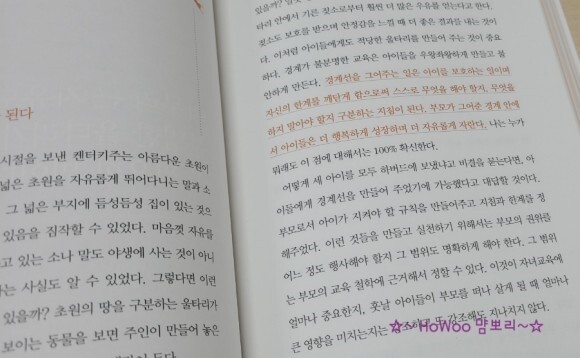 된다
시절을 보낸 켄터키주는 아름다운 초원이
넓은 초원을 자유롭게 뛰어다니는 말과 소
그 넓은 부지에 듬성듬성 집이 있는 것으
있음을 짐작할 수 있었다. 마음껏 자유를
고 있는 소나 말도 야생에 사는 것이 아니
라는 사실도 알 수 있었다. 그렇다면 이런
있을까? 초원의 땅을 구분하는 울타리가
보이는 동물을 보면 주인이 만들어 놓은
있을까? 그
타리 안에서 기른 젖소로부터 훨씬 더 많은 우유를 얻는다고 한다.
젖소도 보호를 받으며 안정감을 느낄 때 더 좋은 결과를 내는 것이
다. 이처럼 아이들에게도 적당한 울타리를 만들어 주는 것이 중요
하다. 경계가 불분명한 교육은 아이들을 우왕좌왕하게 만들고 불
안하게 만든다. 경계선을 그어주는 일은 아이를 보호하는 일이며
자신의 한계를 깨닫게 함으로써 스스로 무엇을 해야 할지, 무엇을
하지 말아야 할지 구분하는 지침이 된다. 부모가 그어준 경계 안에
서 아이들은 더 행복하게 성장하며 더 자유롭게 자란다. 나는 누가
뭐래도 이 점에 대해서는 100% 확신한다.
어떻게 세 아이를 모두 하버드에 보냈냐고 비결을 묻는다면, 아
이들에게 경계선을 만들어 주었기에 가능했다고 대답할 것이다.
부모로서 아이가 지켜야 할 규칙을 만들어주고 지침과 한계를 정
해주었다. 이런 것들을 만들고 실천하기 위해서는 부모의 권위를
어느 정도 행사해야 할지 그 범위도 명확하게 해야 한다. 그 범위
는 부모의 교육 철학에 근거해서 정할 수 있다. 이것이 자녀교육에
얼마나 중요한지, 훗날 아이들이 부모를 떠나 살게 될 때 얼마나
큰 영향을 미치는지는 강조하고 또 강조해도 지나치지 않다.
☆~HoWoo 맘뽀리~☆